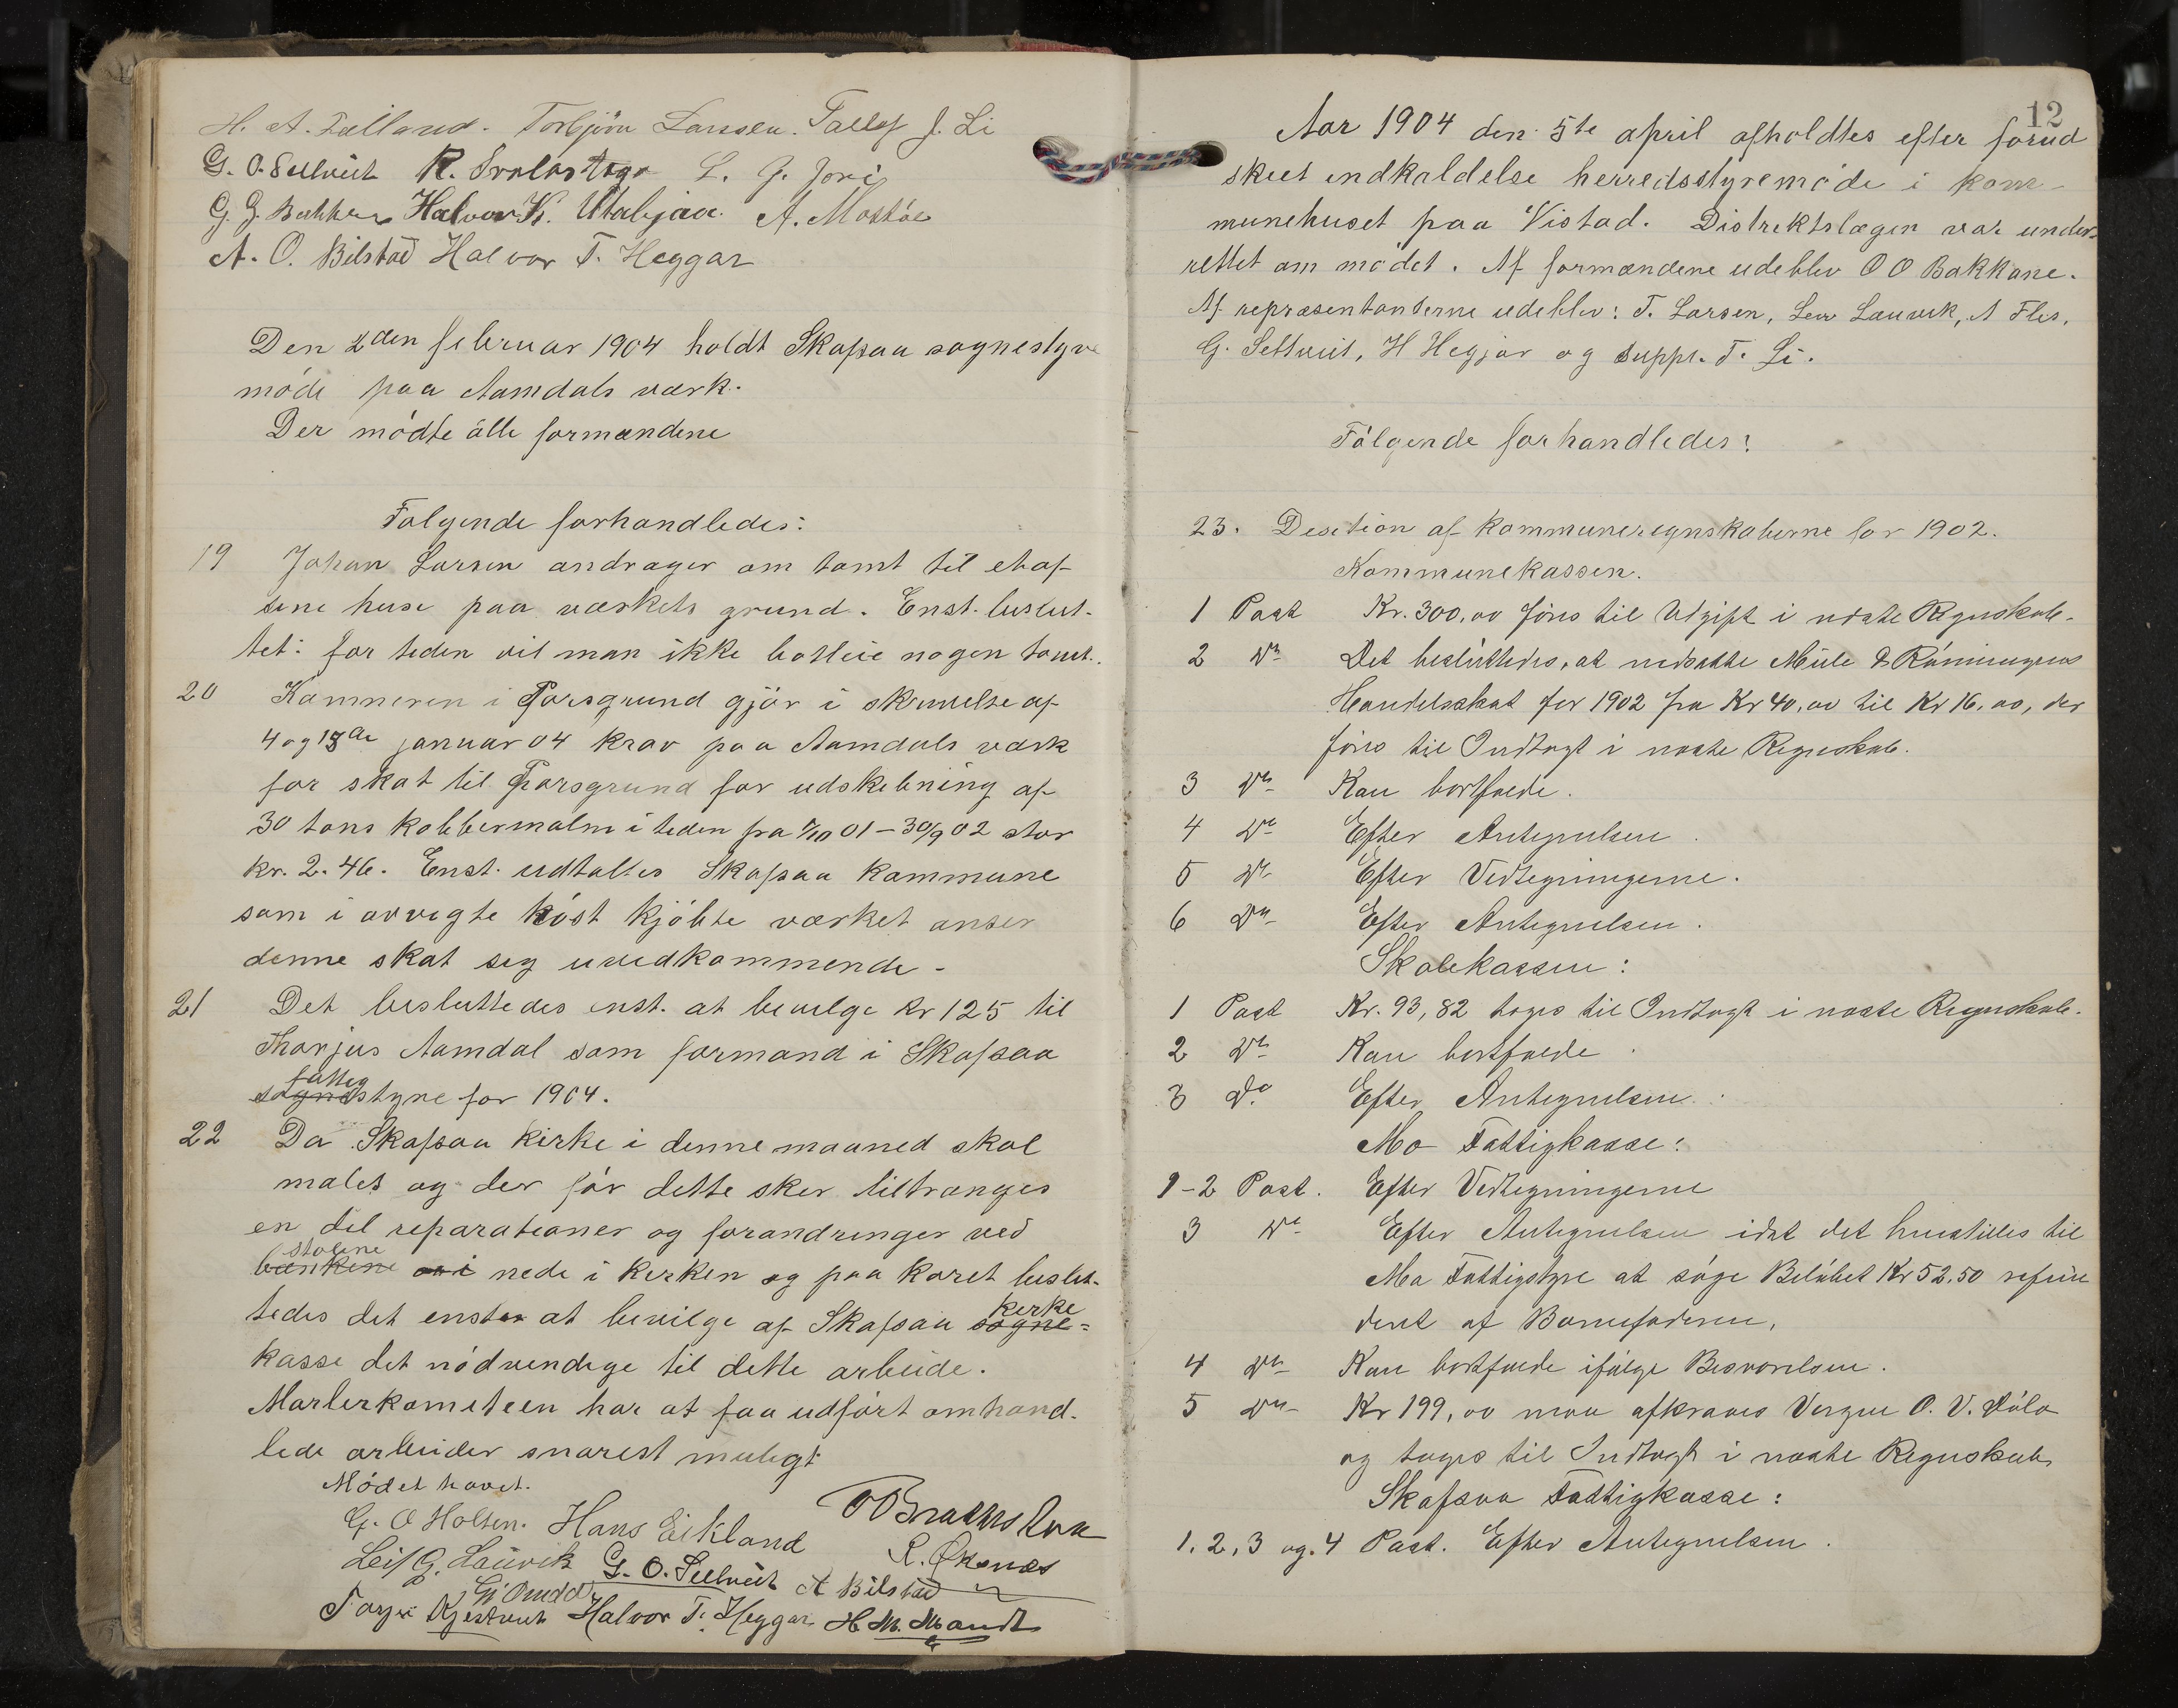 H. A. Dalland. Torbjörn Larssen. Tallef J. Li
G. O. Seltveit R. Svalastoga L. G. Jore
G. G. Bakken Halvor K. Utabjaa. A. Mostöe
A. O. Bilstad Halvor T. Heggar
Den 2den februar 1904 holdt Skafsaa sognestyre
möde paa Aamdals værk.
Der mödte alle formændene
Følgende forhandledes:
19 Johan Larsen andrager om tomt til et af
sine huse paa værkets grund. Enst. beslut-
tet: for tiden vil man ikke bortleie nogen tomt.
20 Kæmneren i Porsgrund gjör i skrivelse af
4 og 13de januar 04 krav paa Aamdals værk
for skat til Porsgrund for udskibning af
30 tons kobbermalm i tiden fra 1/10 01 - 30/9 02 stor
kr. 2.46. Enst. udtaltes Skafsaa kommune
som i avvigte höst kjöbte værket anser
denne skat sig uvedkommende -
21 Det besluttedes enst. at bevilge kr 125 til
Tharjus Aamdal som formand i Skafsaa
fattig
sognestyre for 1904.
22 Da Skafsaa kirke i denne maaned skal
males og der för dette sker tiltrænges
en del reparationer og forandringer ved
stolene
bænkene i nede i kirken og paa koret beslut-
kirke
tedes det enst at bevilge af Skafsaa sogne=
kasse det nödvendige til dette arbeide.
Malerkomiteen har at faa udfört omhand-
lede arbeider snarest muligt
Mödet hævet.
G. O Holten. Hans Eikland
Leif G. Lauvik G. O. Seltveit A Bilstad R. Öksnes
Halvor T. Heggar H. M. Mandt
12
Aar 1904 den 5te april afholdtes efter forud
skeet indkaldelse herredsstyremöde i kom-
munehuset paa Vistad. Distriktslægen var under-
rettet om mödet. Af formændene udeblev O O Bakkane.
Af repræsentanterne udeblev: T. Larsen, Leiv Lauvik, A Flis,
G. Seltveit, H Hegjar og suppl. T. Li.
Fölgende forhandledes:
23. Desition af kommuneregnskaberne for 1902.
Kommunekassen.
1 Post Kr. 300,00 föres til Udgift i næste Regnskab.
2 do Det besluttedes, at nedsætte Miile & Rönningens
Handelsskat for 1902 fra Kr 40,00 til Kr 16,00, der
föres til Indtægt i næste Regnskab.
3 do Kan bortfalde.
4 do Efter Antegnelsen.
5 do Efter Vedtegningerne.
6 do Efter Antegnelsen.
Skolekassen:
1 Post Kr. 93,82 tages til Indtægt i næste Regnskab.
2 do Kan bortfalde.
3 do Efter Antegnelsen.
Mo Fattigkasse:
1-2 Post. Efter Vedtegningerne
3 do Efter Antegnelsen idet det henstilles til
Mo Fattigstyre at söge Belöbet Kr 52,50 refun
deret af Barnefaderen.
4 do Kan bortfalde ifölge Besvarelsen.
5 do Kr 199,00 maa afkræves Vergen O. V. Dölo
og tages til Indtægt i næste Regnskab,
Skafsaa Fattigkasse:
1, 2, 3 og 4 Post. Efter Antegnelsen.